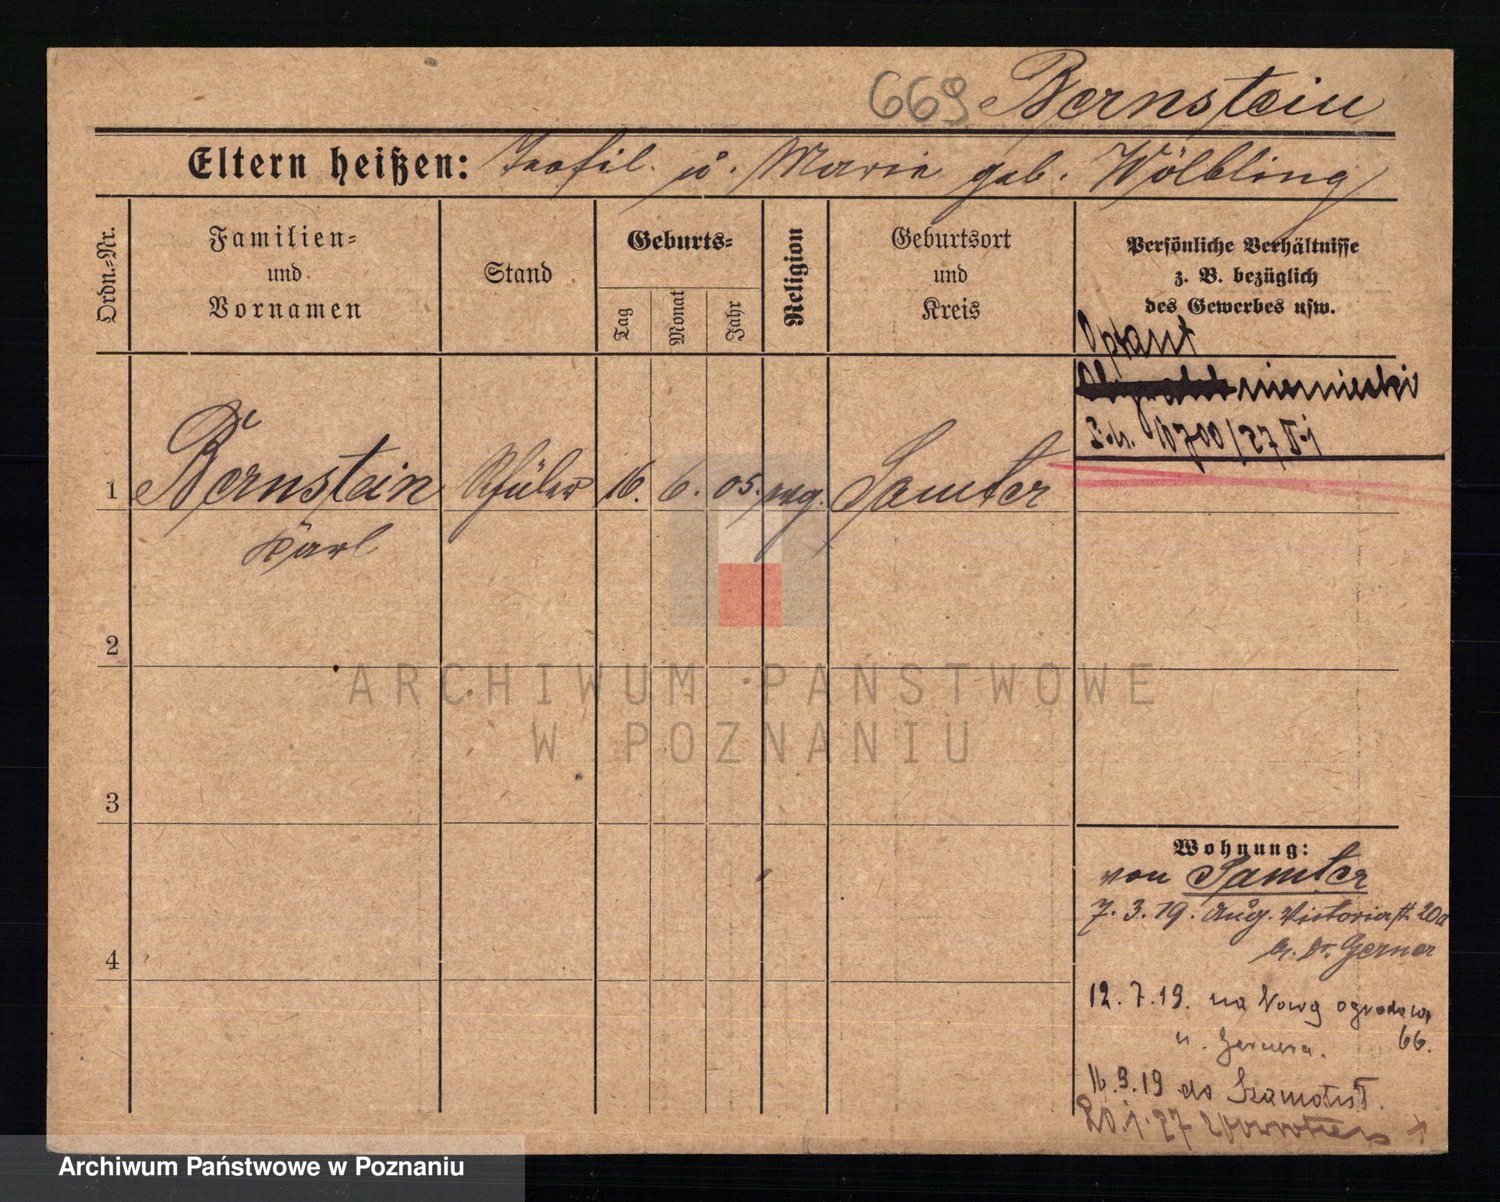 669 Bernstein
Eltern heißen: Teofil u. Marie geb. Wölbling
Ordn.=Nr.
Familien=
und
Vornamen
Stand
Geburts=
Tag
Monat
Jahr
Religion
Geburtsort
und
Kreis
Persönliche Verhältnisse
z. B. bezüglich
des Gewerbes usw.
Optant
niemiecki
1 Bernstein Schüler 16. 6. 05. evg. Samter
Karl
2
3
4
Wohnung:
von Samter
7. 3. 19. Aug. Victoriastr. 20a
b. Dr. Gerner
12. 7. 19. na Nową ogrodową
66.
u. Gernera.
16.9.19 do Szamotuł.
20.1.27
ARCHIWUM PAŃSTWOWE
W POZNANIU
Archiwum Państwowe w Poznaniu